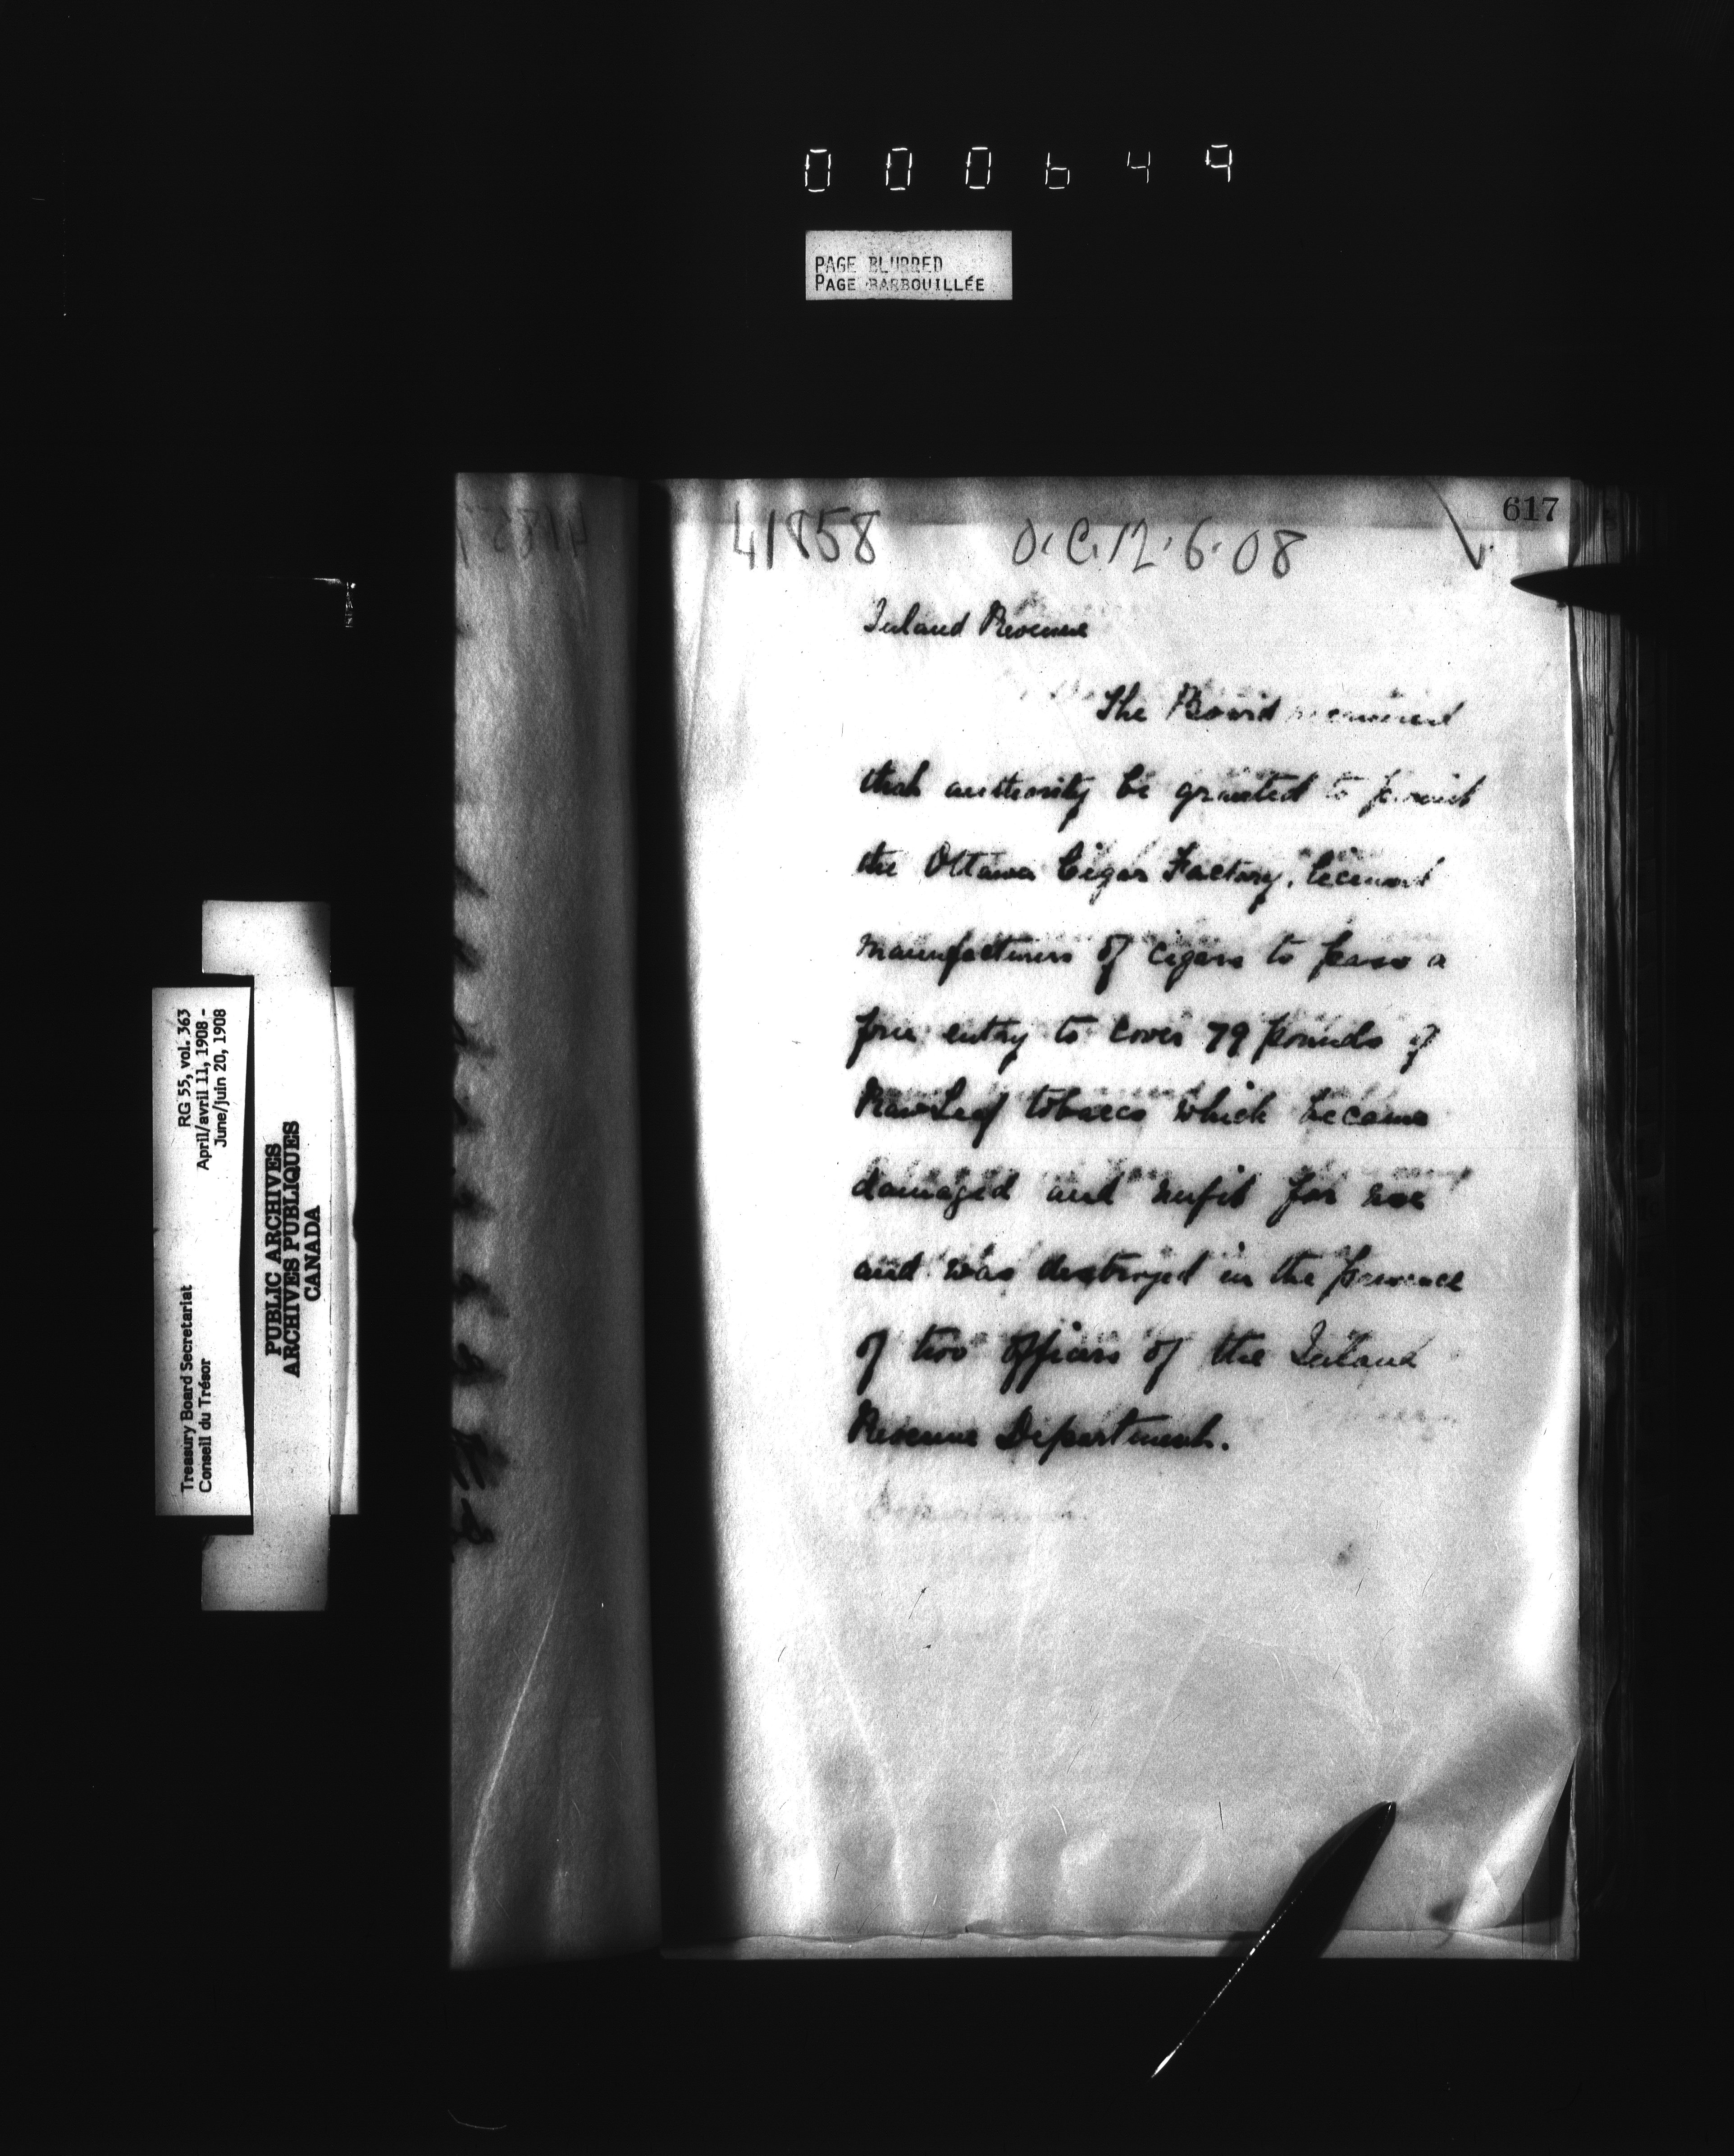 000649
PAGE BLURRED
PAGE BARBOUILLÉE
617
41858 O.C. 12.6.08
Inland Revenue
The Board recommend
that authority be granted to permit
the Ottawa Cigar Factory, licensed
manufacturers of cigars to pass a
free entry to cover 79 pounds of
Raw Leaf tobacco which became
damaged and unfit for use
and was destroyed in the presence
of two officers of the Inland
Revenue Department.
RG 55, vol. 363
April/avril 11, 1908 -
June/juin 20, 1908
Treasury Board Secretariat
Conseil du Trésor
PUBLIC ARCHIVES
ARCHIVES PUBLIQUES
CANADA